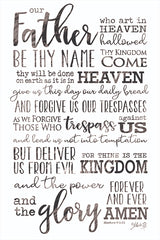 our
Father who art in
HEAVEN
hallowed
BE THY NAME THY KINGDOM
COME
thy will be done
on earth as it is in HEAVEN
give us this day our daily bread
AND FORGIVE US OUR TRESPASSES
AS WE FORGIVE
THOSE WHO trespass against
US
and lead us not into temptation
BUT DELIVER
US FROM EVIL FOR THINE IS THE
KINGDOM
and the power
and the glory FOREVER
AND EVER
AMEN